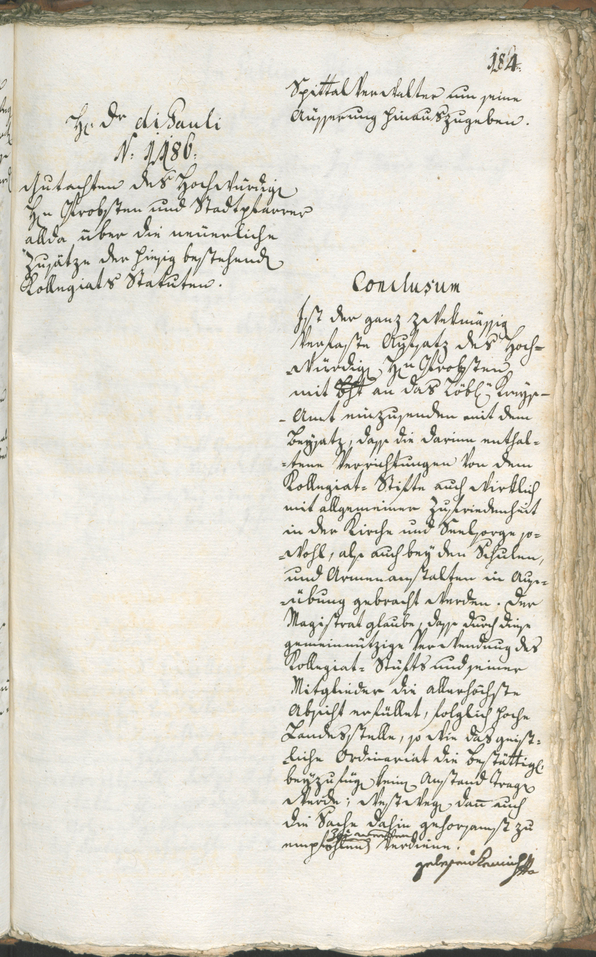 184.
Spittalverwalter um seine
Äusserung hinauszugeben.
H: Dr di Pauli
N: 1486:
Gutachten des Hochwürdig
H:n Probsten und Stadtpfarrer
allda über die neuerliche
Zusätze der hiesig bestehend
Kollegiats Statuten.
Conclusum
Ist der ganz zwekmässig
verfaste Aufsatz des Hoch=
würdig H:n Probsten
mit Bht an das Löbl: Kreyse=
=Amt einzusenden mit dem
Beysatz, dass die darinn enthal=
=tene Verrichtungen von dem
Kollegiat=Stifte auch wirklich
mit allgemeiner Zufriedenheit
in der Kirche und Seelsorge so=
=wohl, als auch bey den Schulen,
und Armenanstalten in Aus=
=übung gebracht werden. Der
Magistrat glaube, dass durch diese
gemeinnützige Verwendung des
Kollegiat=Stüfts und seiner
Mitglieder die allerhöchste
Absicht erfüllet, folglich hohe
Landesstelle, so wie das geist=
=liche Ordinariat die Bestättig
beyzufüg keinen Anstand trag
werde; westweg dan auch
die Sache dahin gehorsamst zu
empfohlen verdiene.